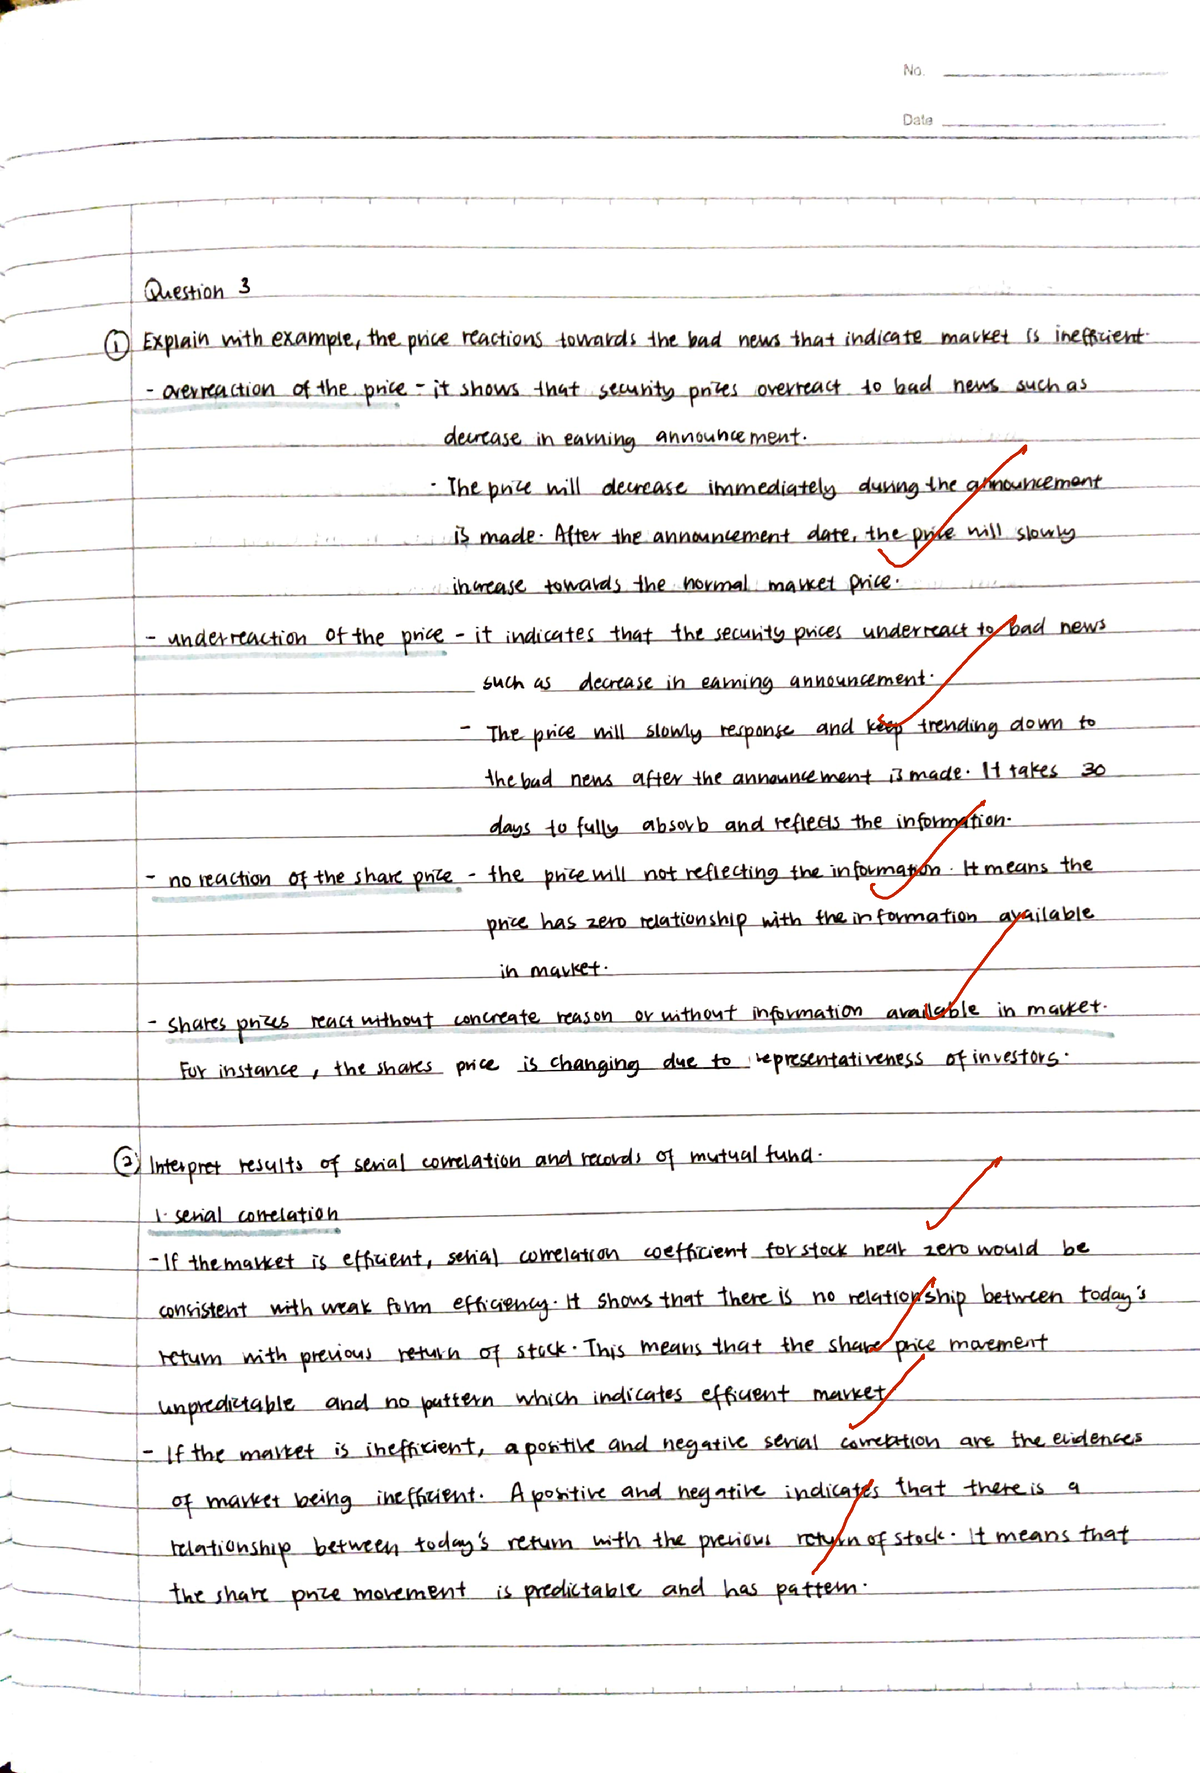 No.
Date
Question 3
① Explain with example, the price reactions towards the bad news that indicate market is inefficient.
- overreaction of the price - it shows that security prices overreact to bad news such as
decrease in earning announcement.
- The price will decrease immediately during the announcement
is made. After the announcement date, the price will slowly
increase towards the normal market price.
- underreaction of the price - it indicates that the security prices underreact to bad news
such as decrease in earning announcement.
- The price will slowly response and keep trending down to
the bad news after the announcement is made. It takes 30
days to fully absorb and reflects the information.
- no reaction of the share price - the price will not reflecting the information. It means the
price has zero relationship with the information available
in market.
- shares prices react without concreate reason or without information available in market.
For instance, the shares price is changing due to representativeness of investors.
② Interpret results of serial correlation and records of mutual fund.
1. serial correlation
- If the market is efficient, serial correlation coefficient for stock near zero would be
consistent with weak form efficiency. It shows that there is no relationship between today's
return with previous return of stock. This means that the share price movement
unpredictable and no pattern which indicates efficient market
- If the market is inefficient, a positive and negative serial correlation are the evidences
of market being inefficient. A positive and negative indicates that there is a
relationship between today's return with the previous return of stock. It means that
the share price movement is predictable and has pattern.